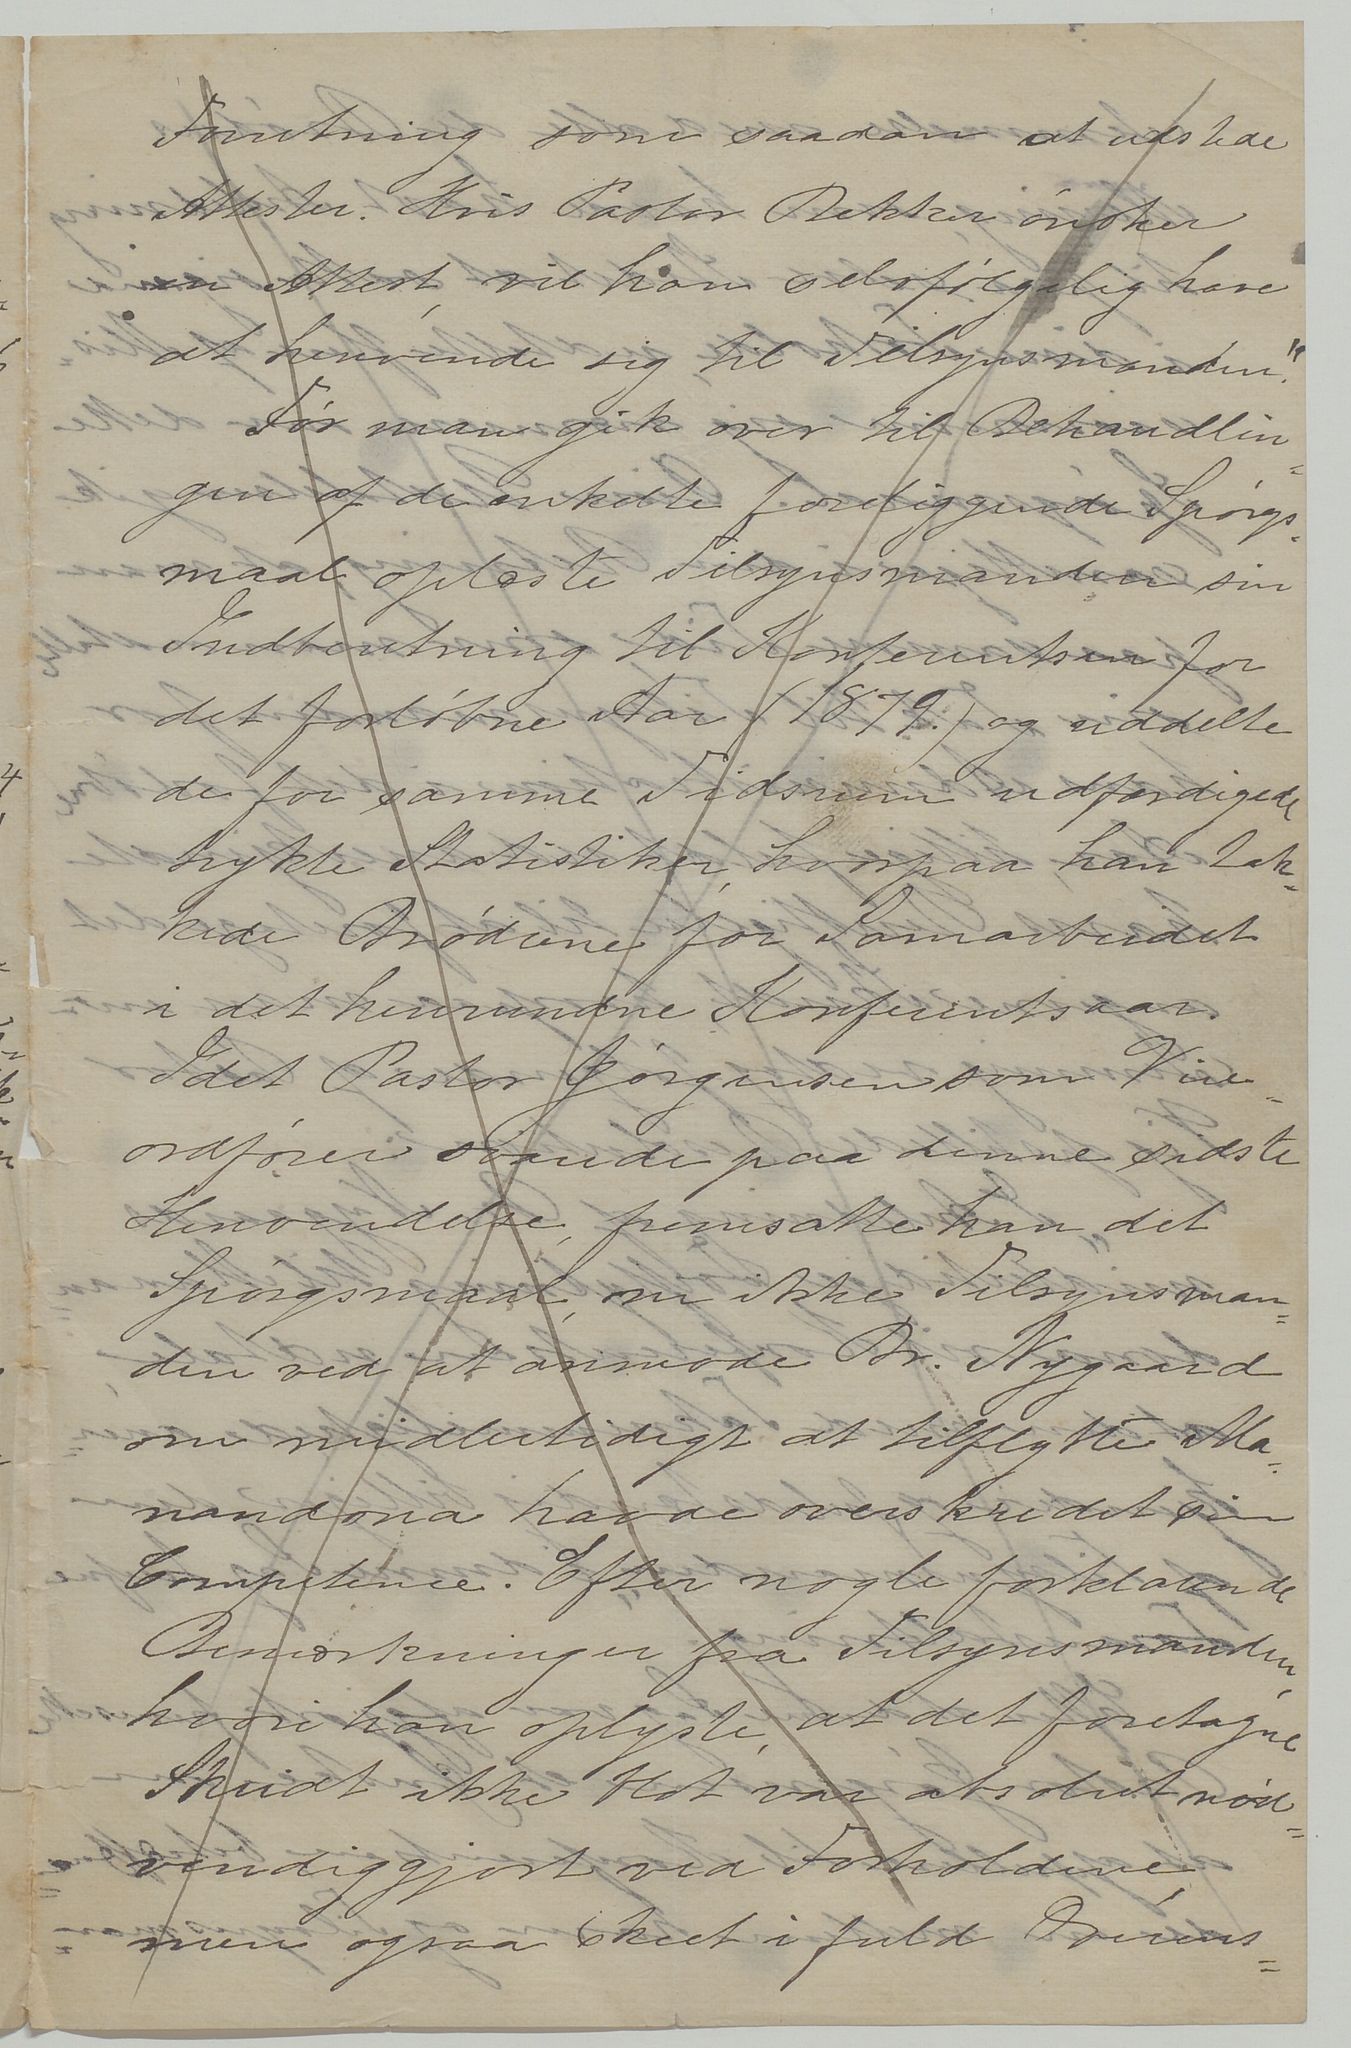 Forretning som saadan at udstede
Attester. Hvis Pastor Bekker ønsker
en Attest, vil han selvfølgelig have
at henvende sig til Tilsynsmanden."
Før man gik over til Behandlin-
gen af de enkelte foreliggende Spørgs-
maal oplæste Tilsynsmanden sin
Indberetning til Konferentsen for
det forløbne Aar (1879.) og uddelte
de for samme Tidsrum udfærdigede
trykte Statistiker, hvorpaa han tak-
kede Brødrene for Samarbeidet
i det henrundne Konferentsaar.
Idet Pastor Jørgensen som Vice-
ordfører svarede paa denne sidste
Henvendelse, fremsatte han det
Spørgsmaal, om ikke Tilsynsman-
den ved at anmode Br. Nygaard
om midlertidigt at tilflytte Ma-
nandona havde overskredet sin
Competence. Efter nogle forklarende
Bemærkninger fra Tilsynsmanden,
hvori han oplyste, at det foretagne
Skridt ikke blot var absolut nød-
vendiggjort ved Forholdene,
men ogsaa skeet i fuld Overens-